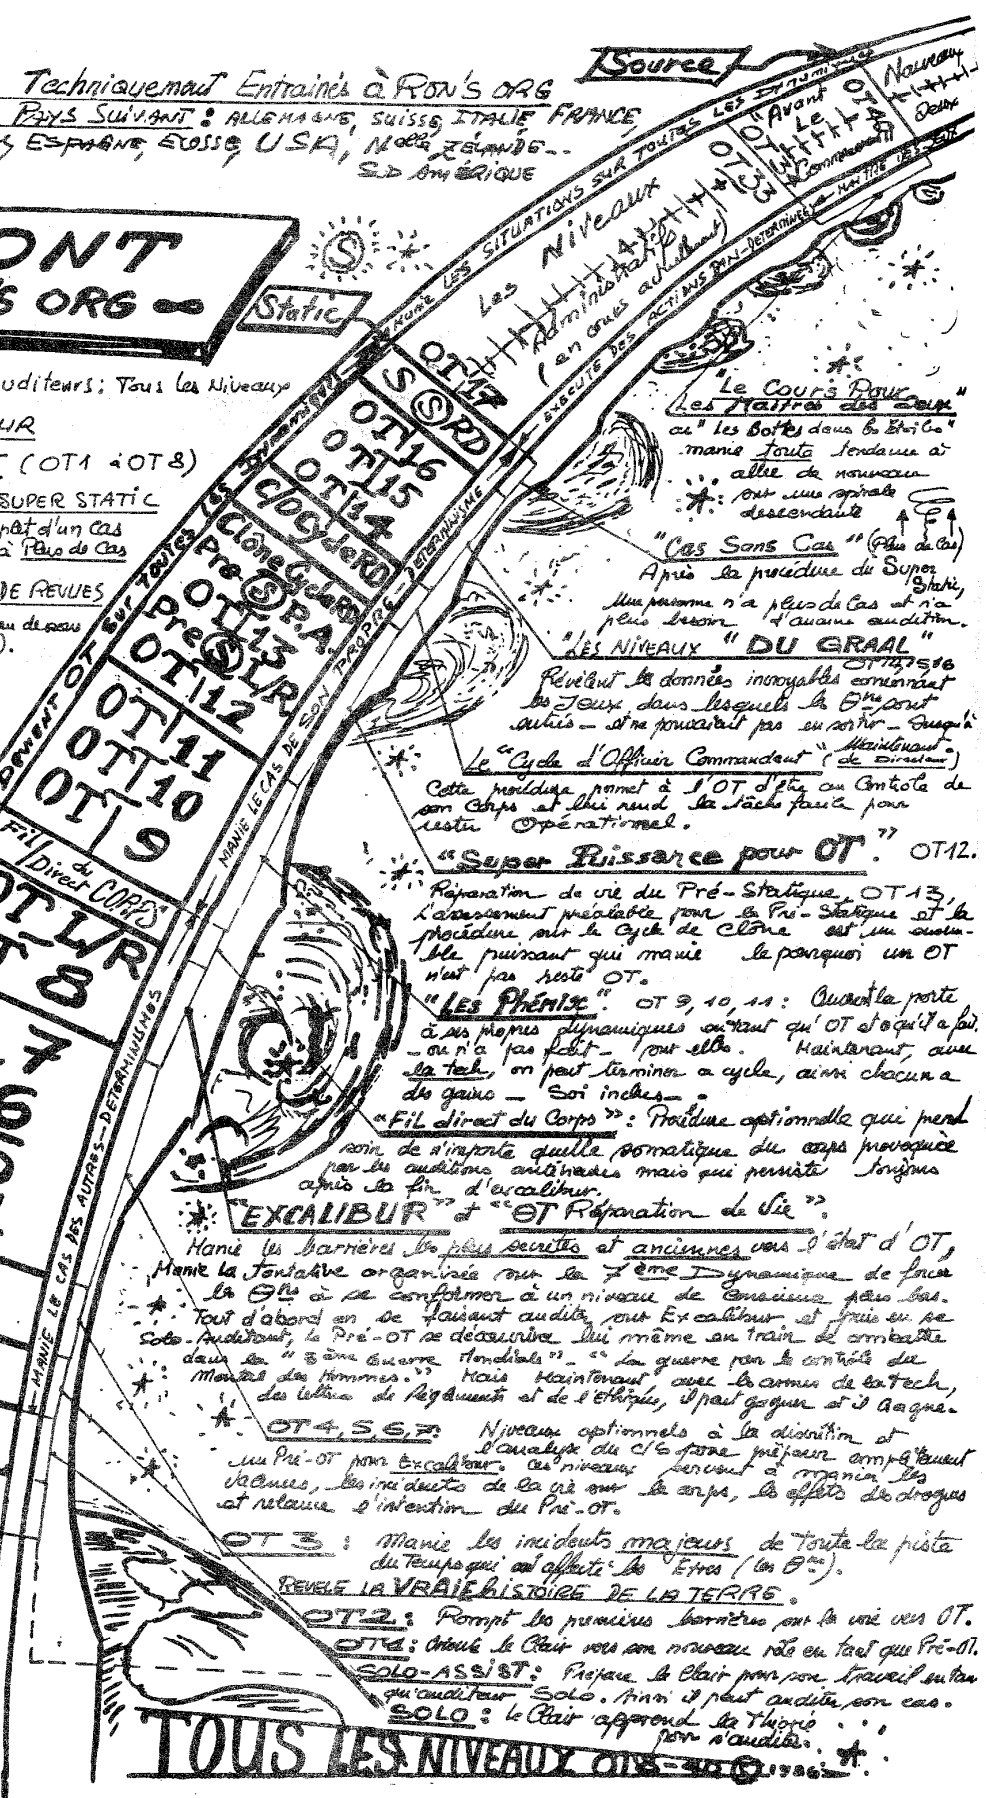 Source
Techniquement Entrainés à RON'S ORG
PAYS SUIVANT : ALLEMAGNE, SUISSE, ITALIE, FRANCE,
ESPAGNE, ECOSSE, USA, Nelle ZÉLANDE...
SD AMÉRIQUE
ONT
S ORG ∞
Static
uditeurs : Tous les Niveaux
UR
(OT1 à OT8)
SUPER STATIC
plet d'un Cas
à Plus de Cas
DE REVUES
au dessous
Nouveaux
Jeux
OT40
"Avant
Le
Commencement
OT33
Les Niveaux
Administratifs
(en cours actuellement)
OT17
S RD
OT 16
OT 15
OT 14
C/O Cycle RD
Clône Cycle RD
Pre S P.A.
OT 13
Pre S L/R
OT 12
OT 11
OT 10
OT 9
Fil Direct du CORPS
OT L/R
T 8
7
6
DEVIENT OT SUR TOUTES LES DYNAMIQUES
MANIE LES SITUATIONS SUR TOUTES LES DYNAMIQUES
MANIE LE CAS DES AUTRES-DETERMINISMES
MANIE LE CAS DE SON PROPRE-DETERMINISME
EXECUTE DES ACTIONS PAN-DETERMINÉES
"Le Cours Pour
Les Maîtres des Jeux"
ou "Les Bottes dans les Etoiles"
manie toute tendance à
aller de nouveau
sur une spirale
descendante
"Cas Sans Cas" (Plus de Cas)
Après la procédure du Super
Static,
Une personne n'a plus de Cas et n'a
plus besoin d'aucune audition.
"LES NIVEAUX "DU GRAAL"
OT 14,15,16
Révèlent les données incroyables concernant
les Jeux, dans lesquels les Θns sont
entrés - et ne pouvaient pas en sortir - Jusqu'à
Maintenant.
Le "Cycle d'Officier Commandant" (de Directeur)
Cette procédure permet à l'OT d'être au Contrôle de
son Corps et lui rend la tâche facile pour
rester Opérationnel.
"Super Puissance pour OT." OT12.
Réparation de vie du Pré-Statique, OT13,
L'assessment préalable pour le Pré-Statique et la
procédure sur le Cycle de Clône est un ensem-
ble puissant qui manie le pourquoi un OT
n'est pas resté OT.
"LES Phénix". OT 9, 10, 11 : Ouvrent la porte
à ses propres dynamiques en tant qu'OT et o qu'il a fait.
- ou n'a pas fait - sur elles. Maintenant, avec
la tech, on peut terminer ce cycle, ainsi chacun a
des gains - Soi inclus.
"Fil direct du Corps" : Procédure optionnelle qui prend
soin de n'importe quelle somatique du corps provoquée
par les auditions antérieures mais qui persiste toujours
après la fin d'excalibur.
"EXCALIBUR" et "OT Réparation de Vie".
Manie les barrières les plus secrètes et anciennes vers l'état d'OT,
Manie la tentative organisée sur la 7ème Dynamique de forcer
les Θns à se conformer à un niveau de Conscience plus bas.
Tout d'abord en se faisant auditer sur Excalibur et puis en se
Solo-Auditant, le Pré-OT se découvrira lui même en train de combattre
dans la "3ème Guerre Mondiale" - "La guerre pour le contrôle du
Mental des Hommes." Mais Maintenant avec les armes de la Tech,
des lettres de Règlements et de l'Ethique, il peut gagner et il Gagne.
OT 4, 5, 6, 7: Niveaux optionnels à la discrétion et
l'analyse du C/S pour préparer complètement
un Pré-OT pour Excalibur. Ces niveaux servent à manier les
valences, les incidents de la vie sur le corps, les effets des drogues
et relance l'intention du Pré-OT.
OT 3 : Manie les incidents majeurs de toute la piste
du Temps qui ont affecté les Etres (les Θns).
REVELE LA VRAIE HISTOIRE DE LA TERRE.
OT 2 : Rompt les premières barrières sur la voie vers OT.
OT 1 : Oriente le Clair vers son nouveau rôle en tant que Pré-OT.
SOLO-ASSIST : Prépare le Clair pour son travail en tan
qu'auditeur SOLO. Ainsi il peut auditer son cas.
SOLO : le Clair apprend la Théorie
pour s'auditer.
TOUS LES NIVEAUX OT8-40 S 1986